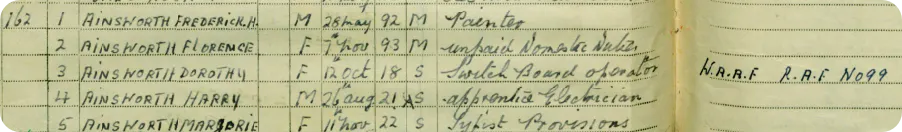 162 1 AINSWORTH FREDERICK.H. M 28 May 92 M Painter
2 AINSWORTH FLORENCE F 7th Nov 93 M unpaid Domestic Duties
3 AINSWORTH DOROTHY F 12 Oct 18 S Switch Board operator W.A.A.F R.A.F No 99
4 AINSWORTH HARRY M 26th aug 21 S apprentice Electrician
5 AINSWORTH MARJORIE F 11th Nov 22 S Typist Provisions